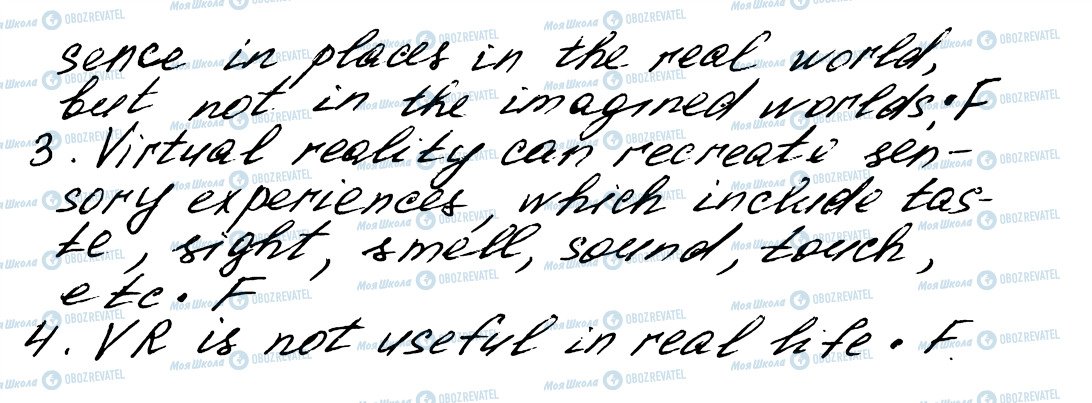 sence in places in the real world,
but not in the imagined worlds. F
3. Virtual reality can recreate sen-
sory experiences, which include tas-
te, sight, smell, sound, touch,
etc. F
4. VR is not useful in real life. F.